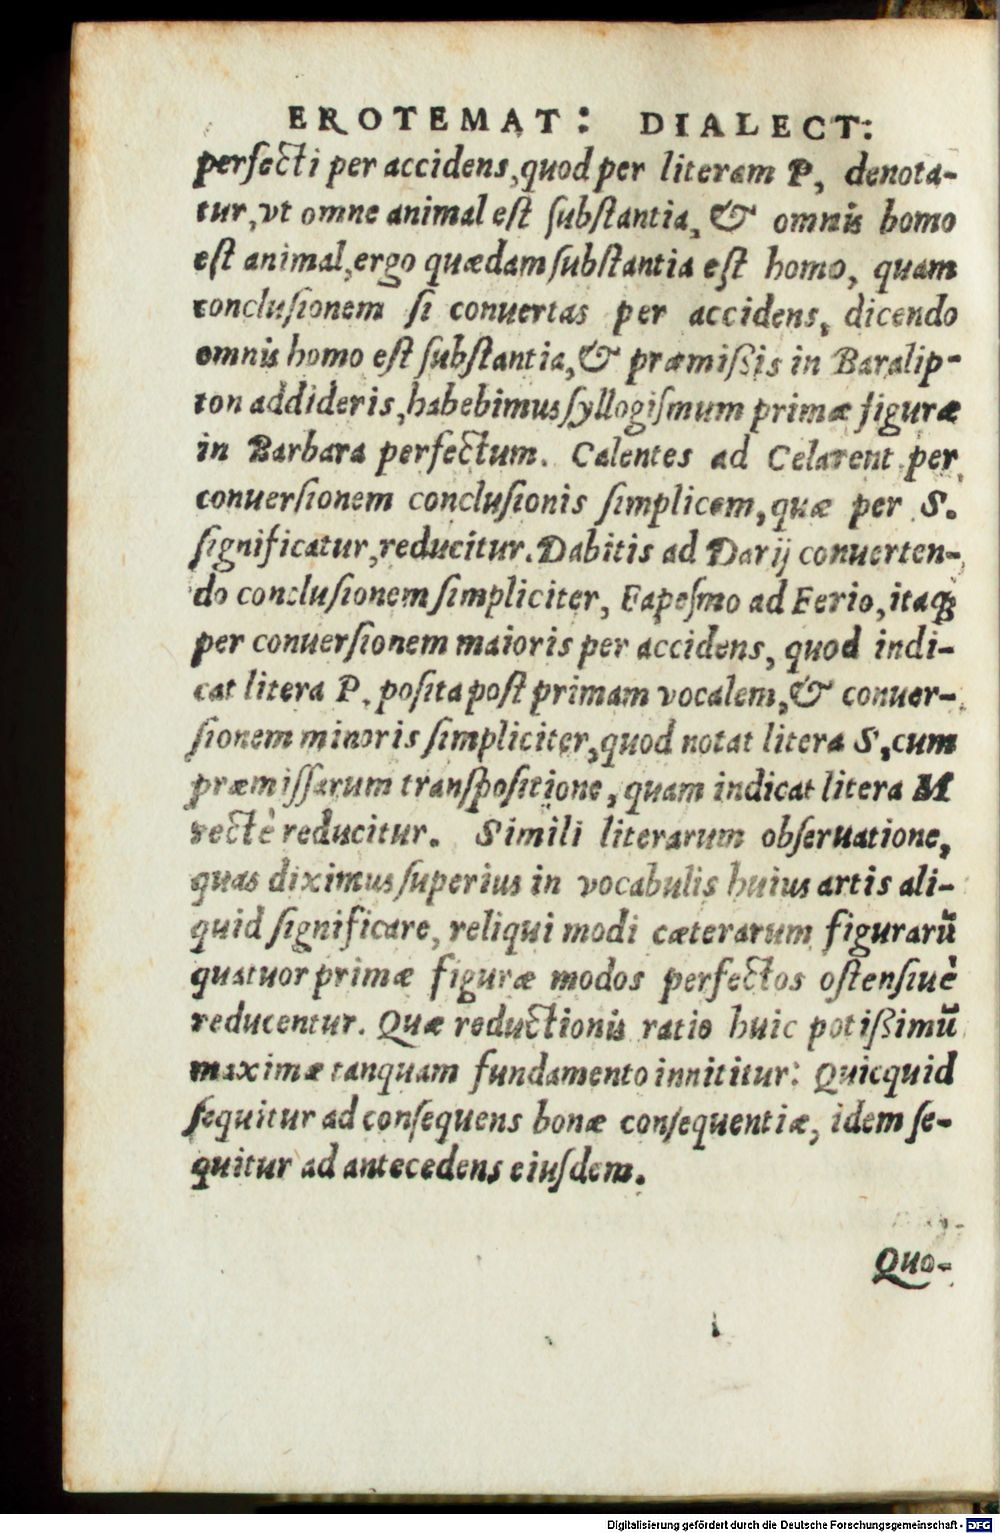 EROTEMAT: DIALECT:
perfecti per accidens, quod per literam P, denota-
tur, vt omne animal est substantia, & omnis homo
est animal, ergo quædam substantia est homo, quam
conclusionem si conuertas per accidens, dicendo
omnis homo est substantia, & præmißis in Baralip-
ton addideris, habebimus syllogismum primæ figuræ
in Barbara perfectum. Calentes ad Celarent per
conuersionem conclusionis simplicem, quæ per S.
significatur, reducitur. Dabitis ad Darij conuerten-
do conclusionem simpliciter, Fapesmo ad Ferio, itaq;
per conuersionem maioris per accidens, quod indi-
cat litera P. posita post primam vocalem, & conuer-
sionem minoris simpliciter, quod notat litera S, cum
præmissarum transpositione, quam indicat litera M
rectè reducitur. Simili literarum obseruatione,
quas diximus superius in vocabulis huius artis ali-
quid significare, reliqui modi cæterarum figurarũ
quatuor primæ figuræ modos perfectos ostensiuè
reducentur. Quæ reductionis ratio huic potißimũ
maximæ tanquam fundamento innititur: Quicquid
sequitur ad consequens bonæ consequentiæ, idem se-
quitur ad antecedens eiusdem.
Quo-
Digitalisierung gefördert durch die Deutsche Forschungsgemeinschaft - DFG